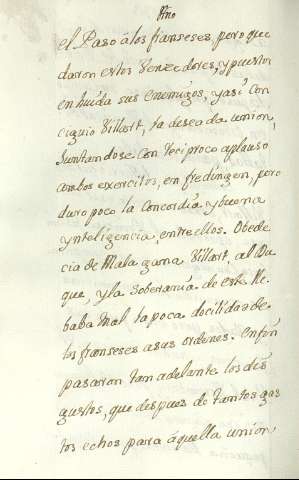 Pno
el Paso álos franseses, pero que
daron estos Vensedores, y puestos
en huida sus enemigos, y asi con
ciguio Villart, la deseada union,
Juntandose con reciproco aplauso
ambos exercitos, en fredingen, pero
duro poco la Concordia y buena
ynteligencia, entre ellos. Obede
cia de Mala gana Villart, al Du
que, y la soberania de este lle
baba mal, la poca docilidad de
los franseses asus ordenes. En fin
pasaron tan adelante los des
gustos, que despues de tantos gas
tos echos para áquella union,